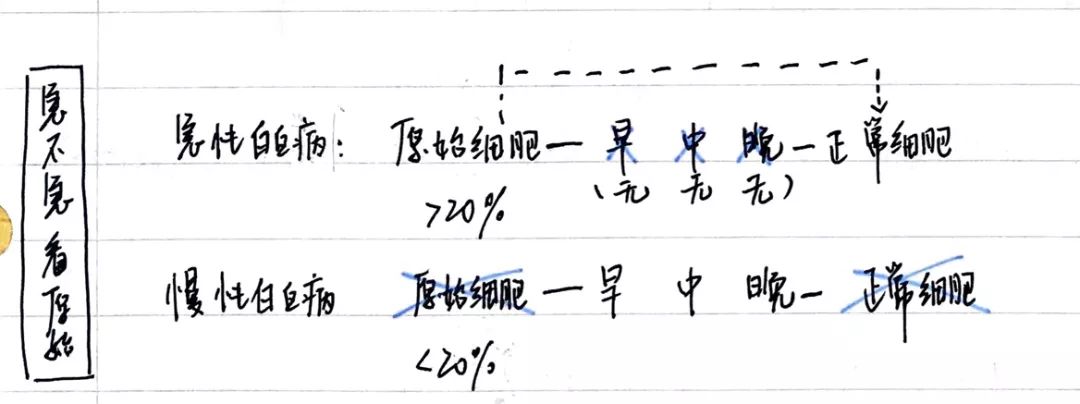 急不急看原始
急性白血病：原始细胞—早 中 晚—正常细胞
>20% （无 无 无）
慢性白血病 原始细胞—早 中 晚—正常细胞
<20%